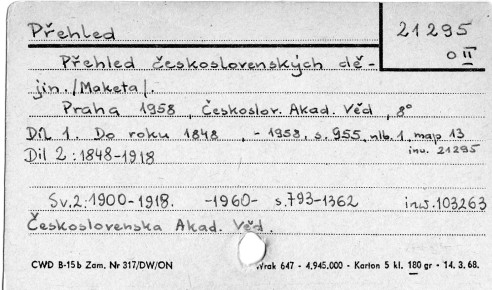 Přehled
21295
O II
Přehled československých dě-
jin. /Maketa/.
Praha 1958, Českoslov. Akad. Věd, 8°
Díl 1. Do roku 1848, - 1958, s. 955, nlb. 1, map 13
inv. 21295
Díl 2: 1848-1918
Sv. 2: 1900-1918. -1960- s. 793-1362 inv. 103263
Československa Akad. Věd.
CWD B-15b Zam. Nr 317/DW/ON rak 647 - 4.945.000 - Karton 5 kl. 180 gr - 14. 3. 68.